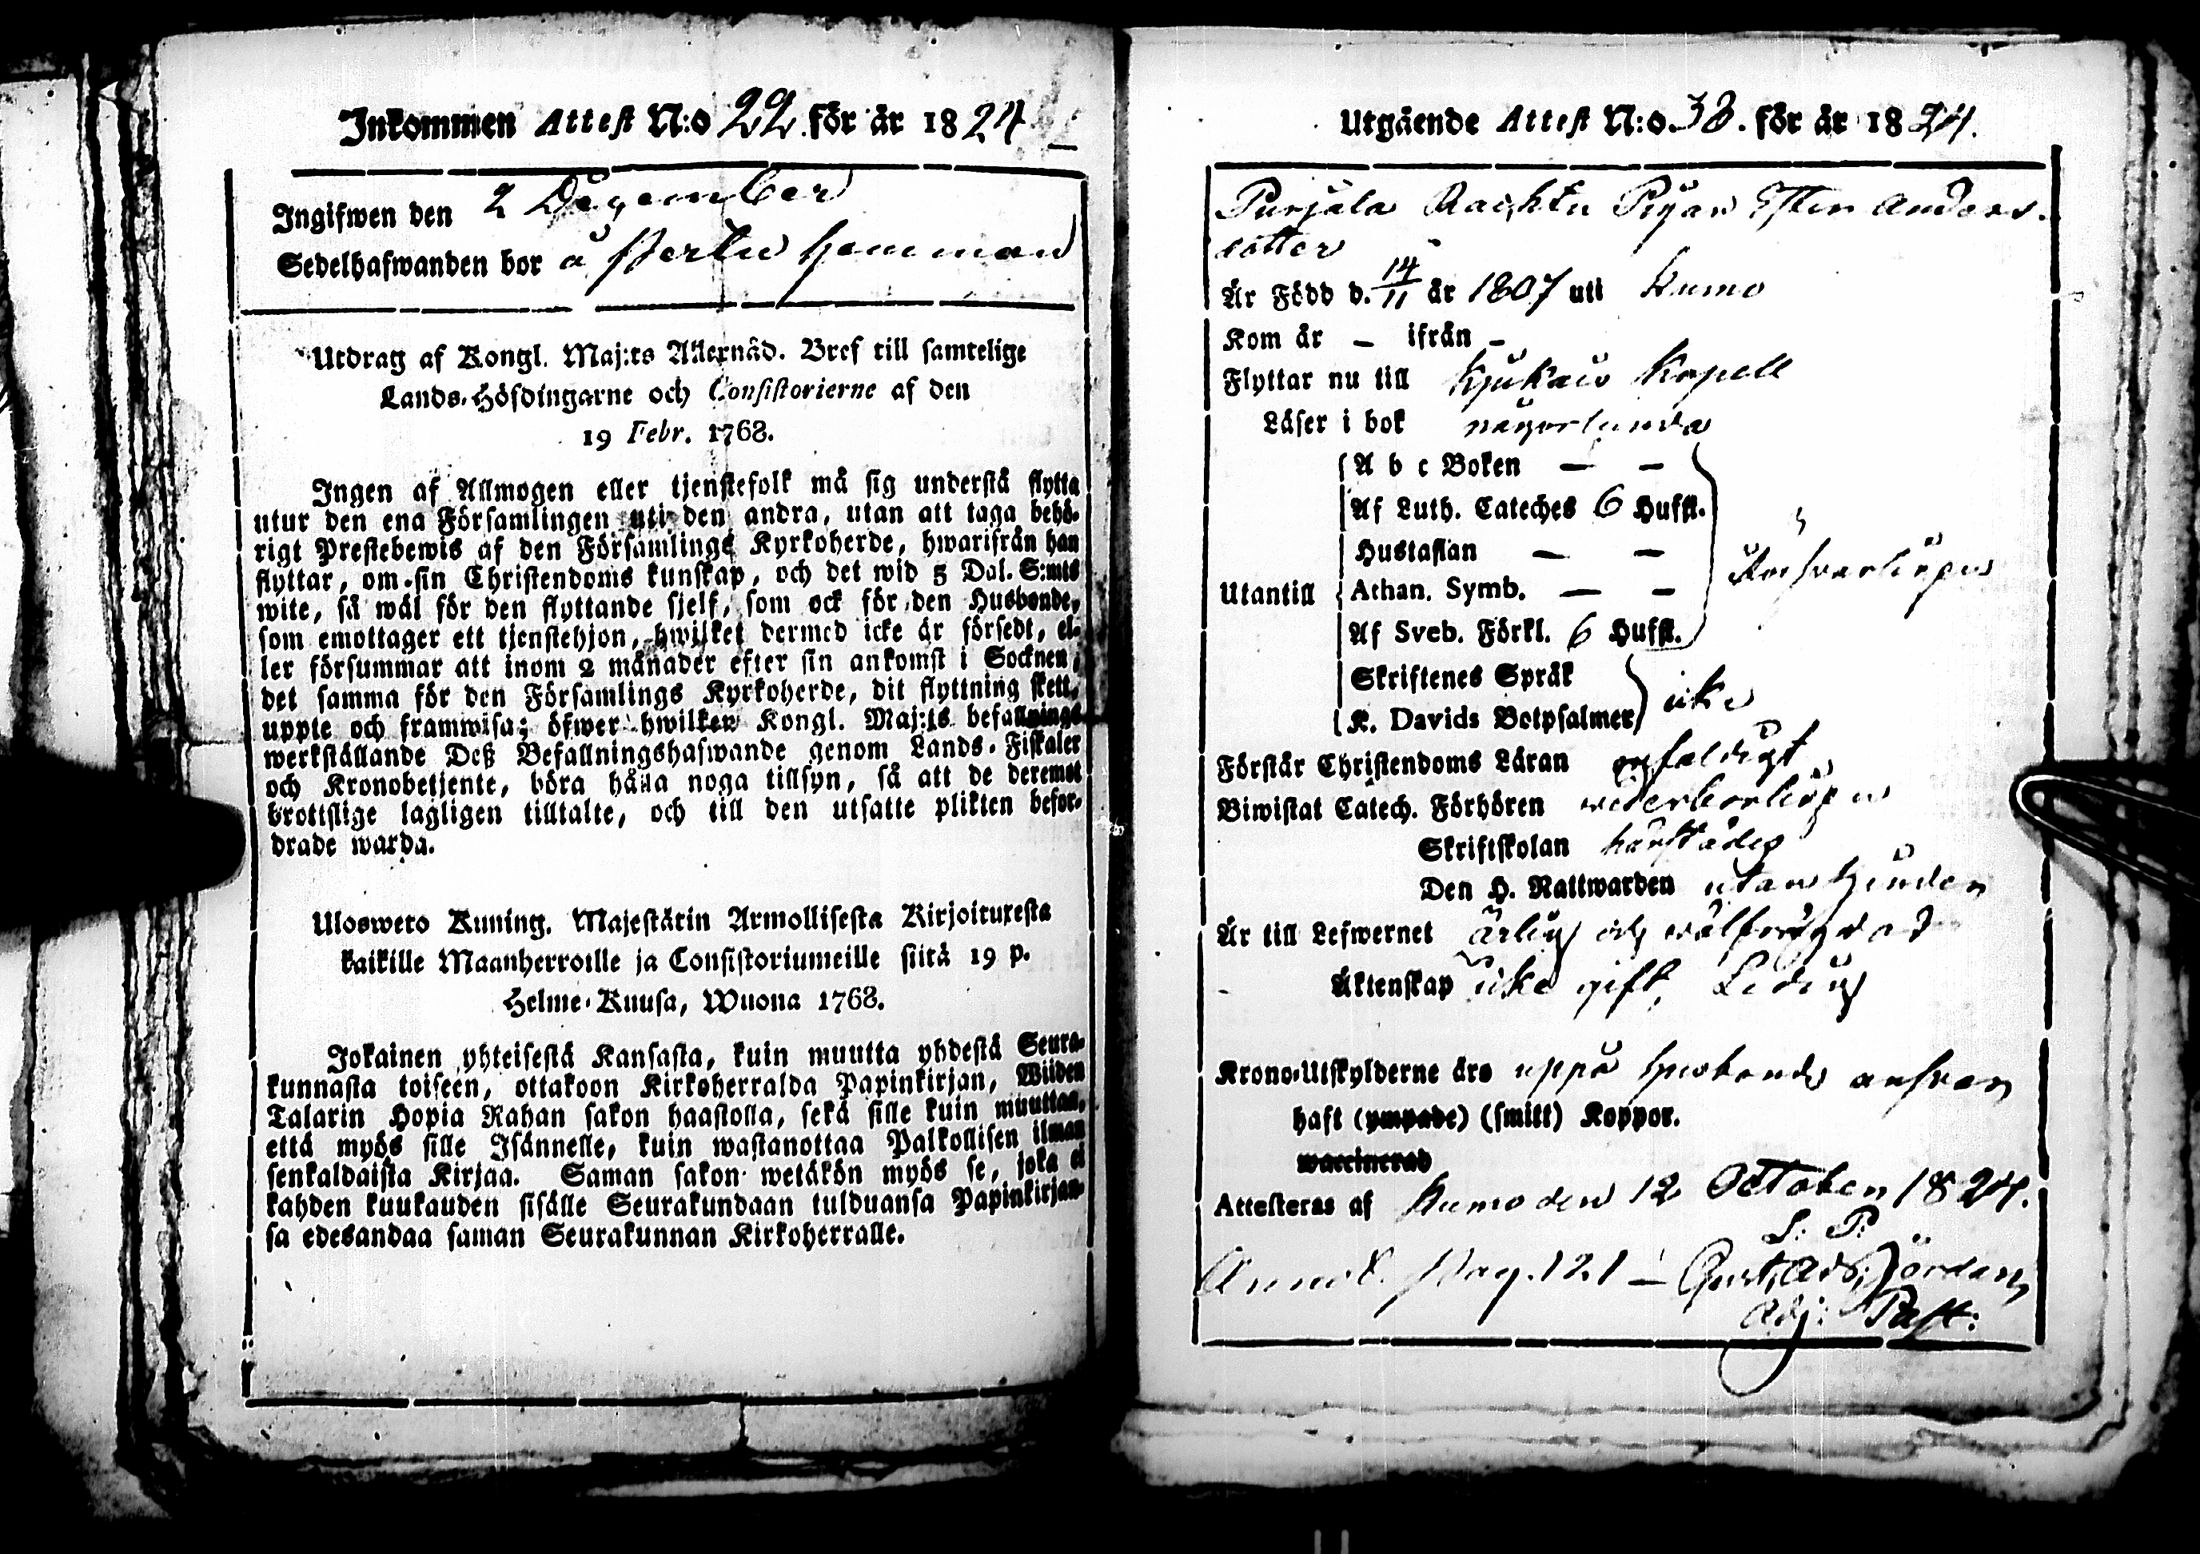 Inkommen Attest N:o 22. för år 1824
Ingifwen den 2 December
Sedelhafwanden bor å hemman
Utdrag af Kongl. Maj:ts Allernåd. Bref till samtelige
Lands-Höfdingarne och Consistorierne af den
19 Febr. 1768.
Ingen af Allmogen eller tjenstefolk må sig understå flytta
utur den ena Församlingen uti den andra, utan att taga behö-
rigt Prestebewis af den Församlings Kyrkoherde, hwarifrån han
flyttar, om sin Christendoms kunskap, och det wid 5 Dal. S:mts
wite, så wäl för den flyttande sjelf, som ock för den Husbonde,
som emottager ett tjenstehjon, hwilket dermed icke är försedt, el-
ler försummar att inom 2 månader efter sin ankomst i Socknen,
det samma för den Församlings Kyrkoherde, dit flyttning skett,
uppte och framwisa; öfwer hwilken Kongl. Maj:ts befallnings
werkställande Deß Befallningshafwande genom Lands-Fiskaler
och Kronobetjente, böra hålla noga tillsyn, så att de deremot
brottslige lagligen tilltalte, och till den utsatte plikten befor-
drade warda.
Ulosweto Kuning. Majestätin Armollisesta Kirjoituxesta
kaikille Maanherroille ja Consistoriumeille siitä 19 p.
Helme-Kuusa, Wuona 1768.
Jokainen yhteisestä Kansasta, kuin muutta yhdestä Seura-
kunnasta toiseen, ottakoon Kirkoherralda Papinkirjan, Wiiden
Talarin Hopia Rahan sakon haastolla, sekä sille kuin muuttaa,
että myös sille Isännelle, kuin wastanottaa Palkollisen ilman
senkaldaista Kirjaa. Saman sakon wetäkön myös se, joka ei
kahden kuukauden sisälle Seurakundaan tulduansa Papinkirjan-
sa edesandaa saman Seurakunnan Kirkoherralle.
Utgående Attest N:o 38. för år 1824.
Purjala Pigan Ester Anders-
dotter
Är Född d. 14/11 år 1807 uti Kumo
Kom år – ifrån –
Flyttar nu till Kjukais Kapell
Läser i bok någorlunda
A b c Boken — —
Af Luth. Cateches 6 Hufst.
Hustaflan — —
Utantill Athan. Symb. — —
Af Sveb. Förkl. 6 Hufst.
Skriftenes Språk
icke
K. Davids Botpsalmer
Förstår Christendoms Läran enfaldigt
Biwistat Catech. Förhören wederbörligen
Skriftskolan härstädes
Den H. Nattwarden utan hinder
Är till Lefwernet ärlig och wälfrägdad
Äktenskap icke gift, Ledig
Krono-Utskylderne äro uppå husbonds answar
haft (ympade) (smitt) Koppor.
waccinerad
Attesteras af Kumo den 12 October 1824.
L: P:
Pag. 121 – Gust. Ad.
Adj: Past: